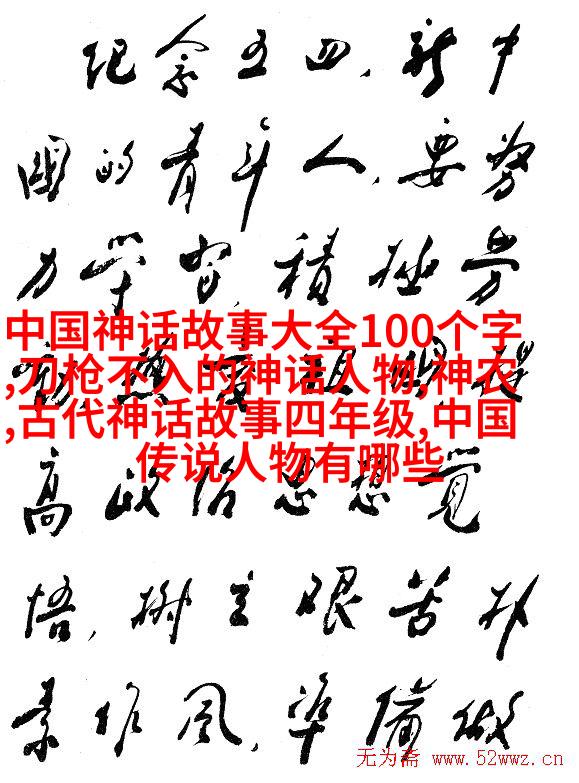 纪念五四，新中
國的青年人，要努
力学習，積極劳
中国神话故事大全100个字
,刀枪不入的神话人物,神农
,古代神话故事四年级,中国
传说人物有哪些
高政治思想覺
悟，树立艰苦朴
素作风，準備做
无为斋 www.52wwz.cn